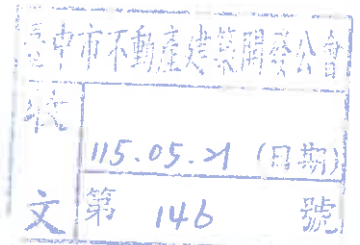 臺中市不動產建築開發公會
收
115.05.21 (日期)
文 第 146 號